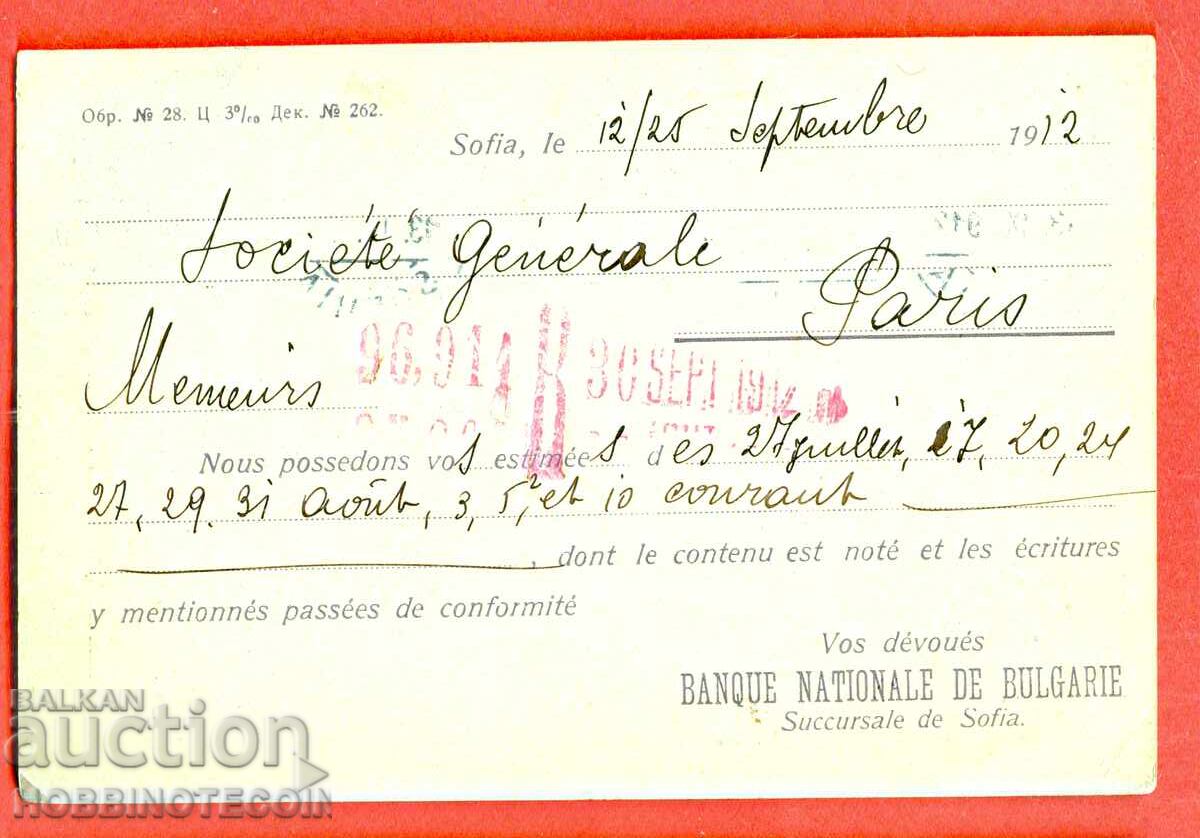 Обр. № 28. Ц 3⁰/₀₀ Дек. № 262.
Sofia, le 12/25 Septembre 1912
Société Générale
Paris
Messieurs
96,911 R 30 SEPT 1912
Nous possedons vos estimées des 27 juillet, 17, 20, 24
27, 29. 31 Août, 3, 5, et 10 courant
, dont le contenu est noté et les écritures
y mentionnés passées de conformité
Vos dévoués
BANQUE NATIONALE DE BULGARIE
Succursale de Sofia.
BALKAN
auction
HOBBINOTECOIN